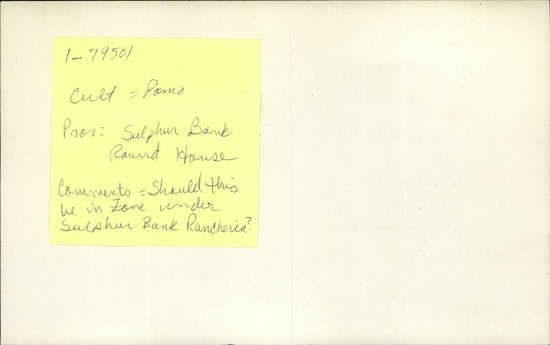 1-79501
Cult = Pomo
Prov: Sulphur Bank
Round House
Comments = Should this
be in Zone under
Sulphur Bank Rancheria?